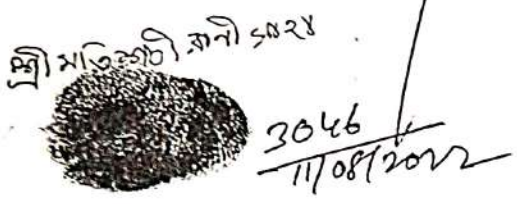 শ্রীমতি শচী রানী
3046
11/08/2022